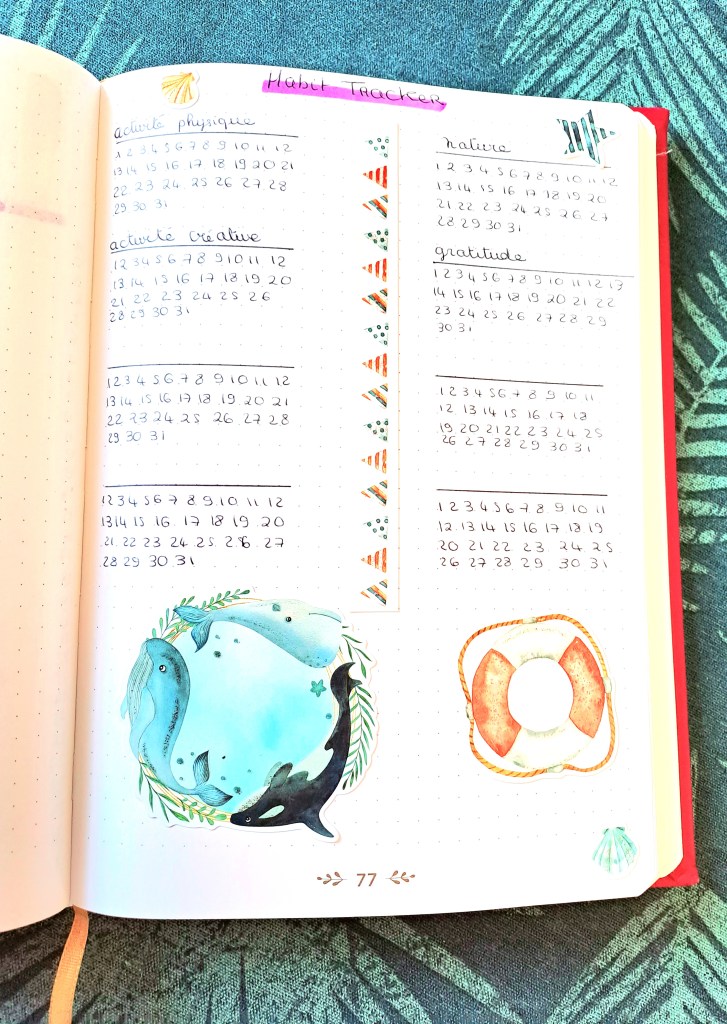 Habit Tracker
activité physique
1 2 3 4 5 6 7 8 9 10 11 12
13 14 15 16 17 18 19 20 21
22 23 24 25 26 27 28
29 30 31
activité créative
1 2 3 4 5 6 7 8 9 10 11 12
13 14 15 16 17 18 19 20
21 22 23 24 25 26
28 29 30 31
1 2 3 4 5 6 7 8 9 10 11 12
13 14 15 16 17 18 19 20 21
22 23 24 25 26 27 28
29 30 31
1 2 3 4 5 6 7 8 9 10 11 12
13 14 15 16 17 18 19 20
21 22 23 24 25 26 27
28 29 30 31
nature
1 2 3 4 5 6 7 8 9 10 11 12
13 14 15 16 17 18 19 20
21 22 23 24 25 26 27
28 29 30 31
gratitude
1 2 3 4 5 6 7 8 9 10 11 12 13
14 15 16 17 18 19 20 21 22
23 24 25 26 27 28 29
30 31
1 2 3 4 5 6 7 8 9 10 11
12 13 14 15 16 17 18
19 20 21 22 23 24 25
26 27 28 29 30 31
1 2 3 4 5 6 7 8 9 10 11
12 13 14 15 16 17 18 19
20 21 22 23 24 25
26 27 28 29 30 31
77